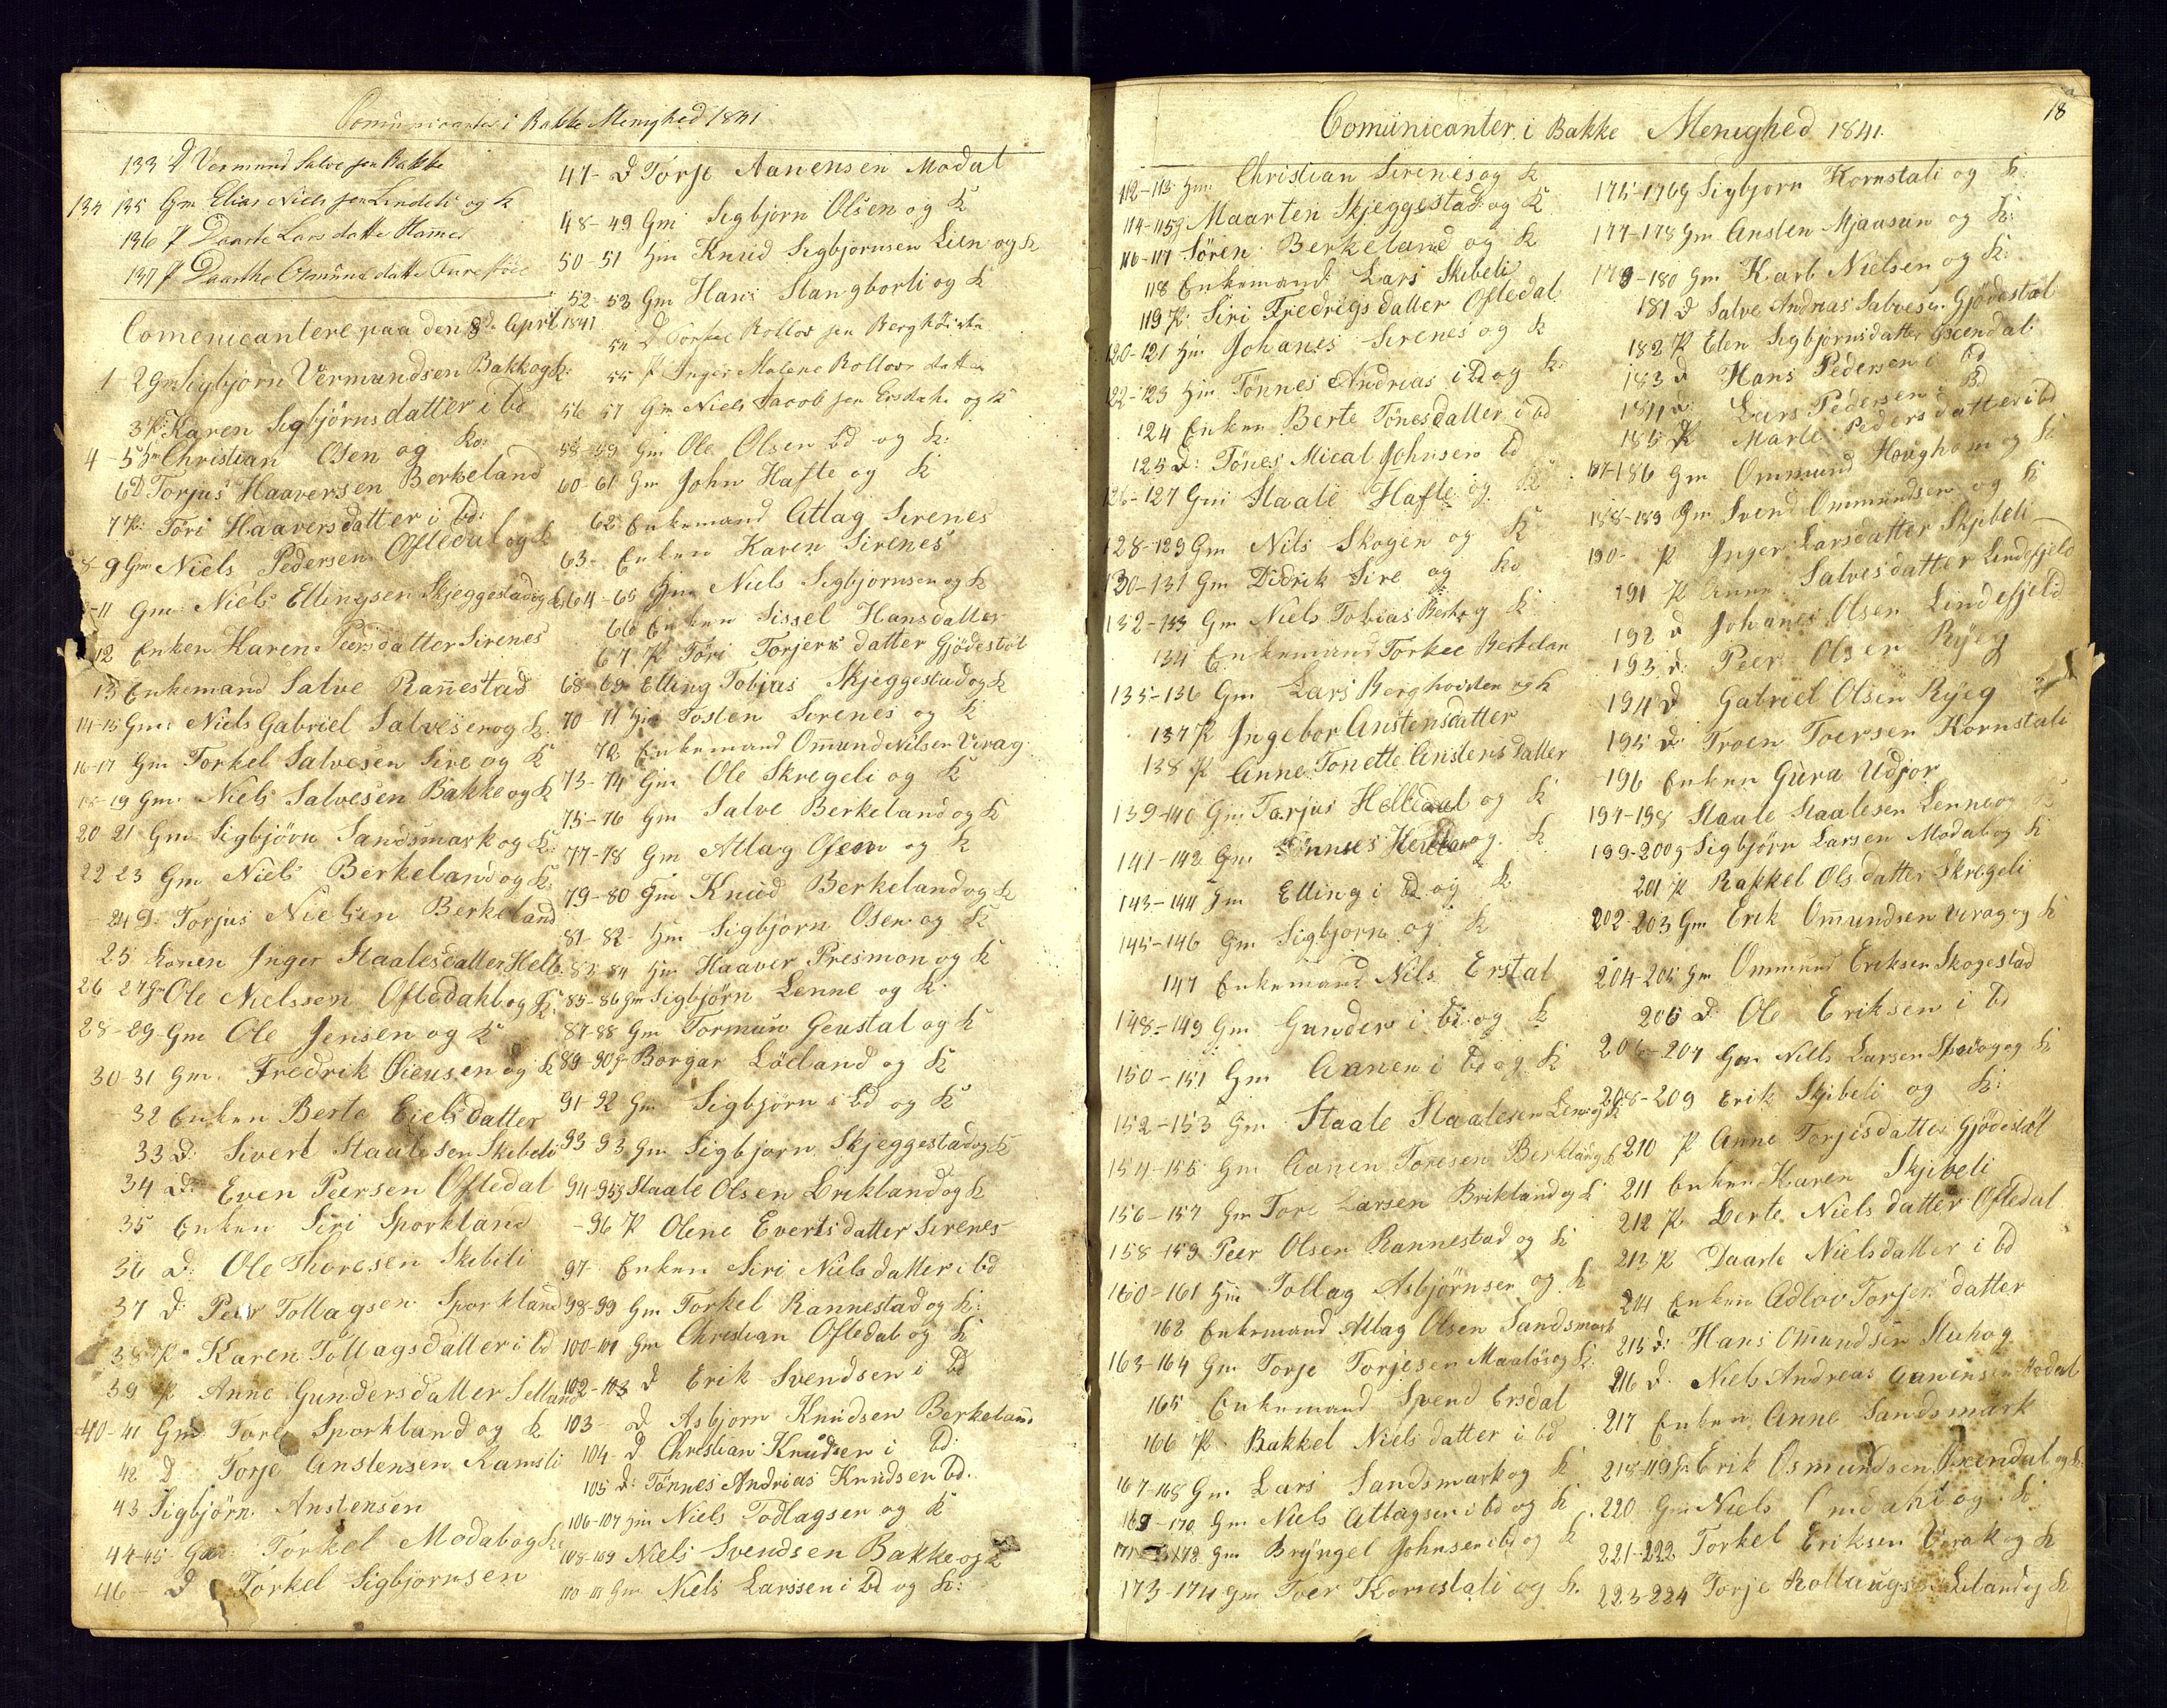 Comunicanter i Bakke Menighed 1841
133 D Vermund Salvesen Bakke
134 135 Gm Elias Nielssen Lindeli og K
136 P Daarte Larsdatter Hamre
137 P Daarthe Omundsdatter
Comenicantere paa den 8de April 1841
1-2 Gm Sigbjorn Vermundsen Bakke og K:
3 P: Karen Sigbjörnsdatter i bd
4-5 Gm Christian Olsen og Ko:
6 D Torjus Haaversen Berkeland
7 P: Töri Haaversdatter i bd:
8-9 Gm Niels Pedersen Oftedal og K
-11 Gm: Niels Ellingsen Skjeggestad og K
12 Enken Karen Peersdatter Sirenes
13 Enkemand Salve Rannestad
14-15 Gm: Niels Gabriel Salvesen og K.
16-17 Gm Torkel Salvesen Sire og K
18-19 Gm: Niels Salvesen Bakke og K
20-21 Gm Sigbjörn Sandsmark og K:
22 23 Gm Niels Berkeland og K:
24 D. Torjus Nielsen Berkeland
25 Konen Inger Staalesdatter Helle
26 27 Gm Ole Nielssen Oftedahl og K:
28-29 Gm Ole Jensen og K
30-31 Gm. Fredrik Öiensen og K
32 Enken Berte Eielsdatter
33 D: Sivert Staalesen Skibeli
34 D: Even Peersen Oftedal
35 Enken Siri Sporkland
36 D: Ole Thoresen Skibeli
37 D: Peer Tollagsen Sporkland
38 P: Karen Tollagsdatter i bd
39 P Anne Gundersdatter Selland
40-41 Gm Tore Sporkland og K
42 D Torje Anstensen Ramsli
43 Sigbjörn Anstensen
44-45 Gm: Torkel Modal og K:
46- D Torkel Sigbjörnsen
47- D Törje Aanensen Modal
48-49 Gm Sigbjörn Olsen og K
50-51 Gm Knud Sigbjornsen Lien og K
52-53 Gm Hans Stangborli og K
54 D Torkel Rollovsen Berghöiden
55 P Inger Malene Rollovsdatter
56 57 Gm Niels Jacobsen Ersdahl og K
58-59 Gm Ole Olsen bd og K:
60-61 Gm John Hafte og K
62 Enkemand Atlag Sirenes
63- Enken Karen Sirenes
64-65 Gm Niels Sigbjornsen og K
66 Enken Sissel Hansdatter
67 P Töri Torjersdatter Gjödestöl
68-69 Elling Tobias Skjeggestad og K
70-71 Gm Tosten Sirenes og K
72 Enkemand Omund Nilsen Virag
73-74 Gm Ole Skregeli og K
75-76 Gm Salve Berkeland og K
77-78 Gm Atlag Osen og K
79-80 Gm Knud Berkeland og K
81-82- Gm Sigbjorn Osen og K
83-84 Gm Haaver Presmon og K
85-86 Gm Sigbjörn Lenne og K.
87-88 Gm Tormun Geustal og K
89-90 g Borgar Löeland og K
91-92 Gm Sigbjörn i bd og K
93-93 Gm Sigbjorn Skjeggestad og K
94-95 g Staale Olsen Brekland og K
-96 P Olene Evertsdatter Sirenes
97- Enken Siri Nielsdatter i bd
98-99 Gm Torkel Rannestad og K:
100-101 Gm Christian Oftedal og K
102-103 D Erik Svendsen i bd
103- D Asbjorn Knudsen Berkeland
104 D Christian Knudsen i bd:
105 D: Tönnes Andrias Knudsen bd.
106-107 Gm Niels Todlagsen og K
108-109 Niels Svendsen Bakke og K
110-111 Gm Niels Larssen i bd og K:
18
Comunicanter i Bakke Menighed 1841.
112-113 Gm: Christian Sirenes og K
114-115 g Maarten Skjeggestad og K
116-117 Sören Berkeland og K
118 Enkemand Lars Skibeli
119 P: Siri Fredrigsdatter Oftedal
120-121 Gm Johanes Sirenes og K
122-123 Gm Tönnes Andrias i bd og K:
124 Enken Berte Tönesdatter i bd
125 D: Tönes Mical Johnsen bd
126-127 Gm Staale Hafte og K
128-129 Gm Nils Skogen og K
130-131 Gm Didrik Sire og Ko
132-133 Gm Niels Tobias Berk og K
134 Enkemand Torkel Berkelan
135-136 Gm Lars Borghoiden og K
137 P Ingebor Anstensdatter
138 P Anne Tonette Anstensdatter
139-140 Gm Tarjus Helledal og K
141-142 Gm Tönnes og K
143-144 Gm Elling i bd og K
145-146 Gm Sigbjorn og K
147 Enkemand Nils Erstal
148-149 Gm Gunder i bd og K
150-151 Gm Aanen i bd og K
152-153 Gm Staale Staalesen Len og K
154-155 Gm Aanen Toresen Berkland og K
156-157 Gm Tore Larsen Brikland og K
158-159 Peer Olsen Rannestad og K
160-161 Gm Tollag Asbjörnsen og K
162 Enkemand Atlag Olsen Sandsmark
163-164 Gm Torje Torjesen Maalös og K:
165 Enkemand Svend Ersdal
166 P. Rakkel Nielsdatter i bd
167-168 Gm Lars Sandsmark og K
169-170 Gm Niels Atlagsen i bd og K
171-172 Gm Bryngel Johnsen i bd og K
173-174 Gm Toer Kornstali og K.
175-176 g Sigbjorn Kornstali og K:
177-178 Gm Ansten Mjaasun og K:
179-180 Gm Karl Nielsen og K:
181 D Salve Andrias Salvesen Gjödestöl
182 P Elen Sigbjörnsdatter Öxendal
183 D Hans Pedersen i bd
184 D: Lars Pedersen i bd
185 P Marte Pedersdatter i bd
187-186 Gm Ommund Houghom og K
188-189 Gm Svend Ommundsen og K
190- P Inger Larsdatter Skjibeli
191 P Anne Salvesdatter Lindefjeld
192 D Johanes Olsen Lindefjeld
193 D: Peer Olsen Ryeg
194 D Gabriel Olsen Ryeg
195 D: Troen Toersen Kornstali
196 Enken Gura Udjor
197-198 Staale Staalesen Lenne og K
199-200 g Sigbjörn Larsen Modal og K
201 P Rakkel Olsdatter Skregeli
202-203 Gm Erik Omundsen Virag og K
204-205 Gm Ommund Eriksen Skogestad
205 D Ole Eriksen i bd
206-207 Gm Niels Larsen og K
208-209 Erik Skjibeli og K:
210 P Anne Torjisdatter Gjödestöl
211 Enken Karen Skjibeli
212 P Berte Nielsdatter Oftedal
213 P Daarte Nielsdatter i bd
214 Enken Adlov Torjersdatter
215 D: Hans Omundsen Stuhog
216 D. Niels Andreas Aanensen Modal
217 Enken Anne Sandsmark
218-119 Gm Erik Osmundsen Öxendal og K:
220 Gm Niels og K
221-222 Torkel Eriksen Virak og K
223-224 Torje Rollaugsen Leland og K